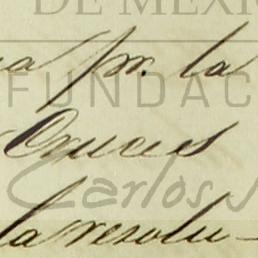 DE MÉXIC
a pr. la
FUNDAC
Cruces
Carlos S
la resolu-